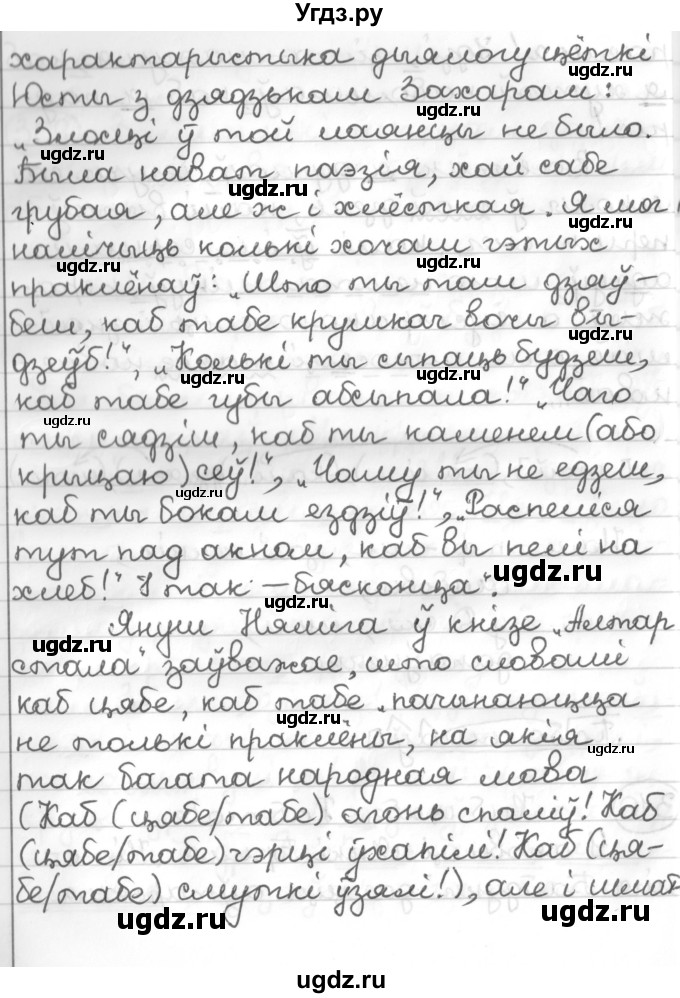 Угдз.ру
характарыстыка дыялогу цёткі
Юсты з дзядзькам Захарам:
„Злосці ў той лаянцы не было.
Была нават паэзія, хай сабе
грубая, але ж і хлёсткая. Я мог
налічыць колькі хочаш гэтых
праклёнаў: „Што ты там дзяў-
беш, каб табе крумкач вочы вы-
дзеўб!“, „Колькі ты сыпаць будзеш,
каб табе губы абсыпала!“ „Чаго
ты сядзіш, каб ты каменем (або
крыцаю) сеў!“, „Чаму ты не едзеш,
каб ты бокам ездзіў!“, „Распеліся
тут пад акном, каб вы пелі на
хлеб!“ І так – бясконца“.
Януш Няміга ў кнізе „Алтар
стала“ заўважае, што словамі
каб цябе, каб табе „пачынаюцца
не толькі праклёны, на якія
так багата народная мова
(Каб (цябе/табе) агонь спаліў! Каб
(цябе/табе) чэрці ўхапілі! Каб (ця-
бе/табе) смуткі ўзялі!), але і шмат
ugdz.ru